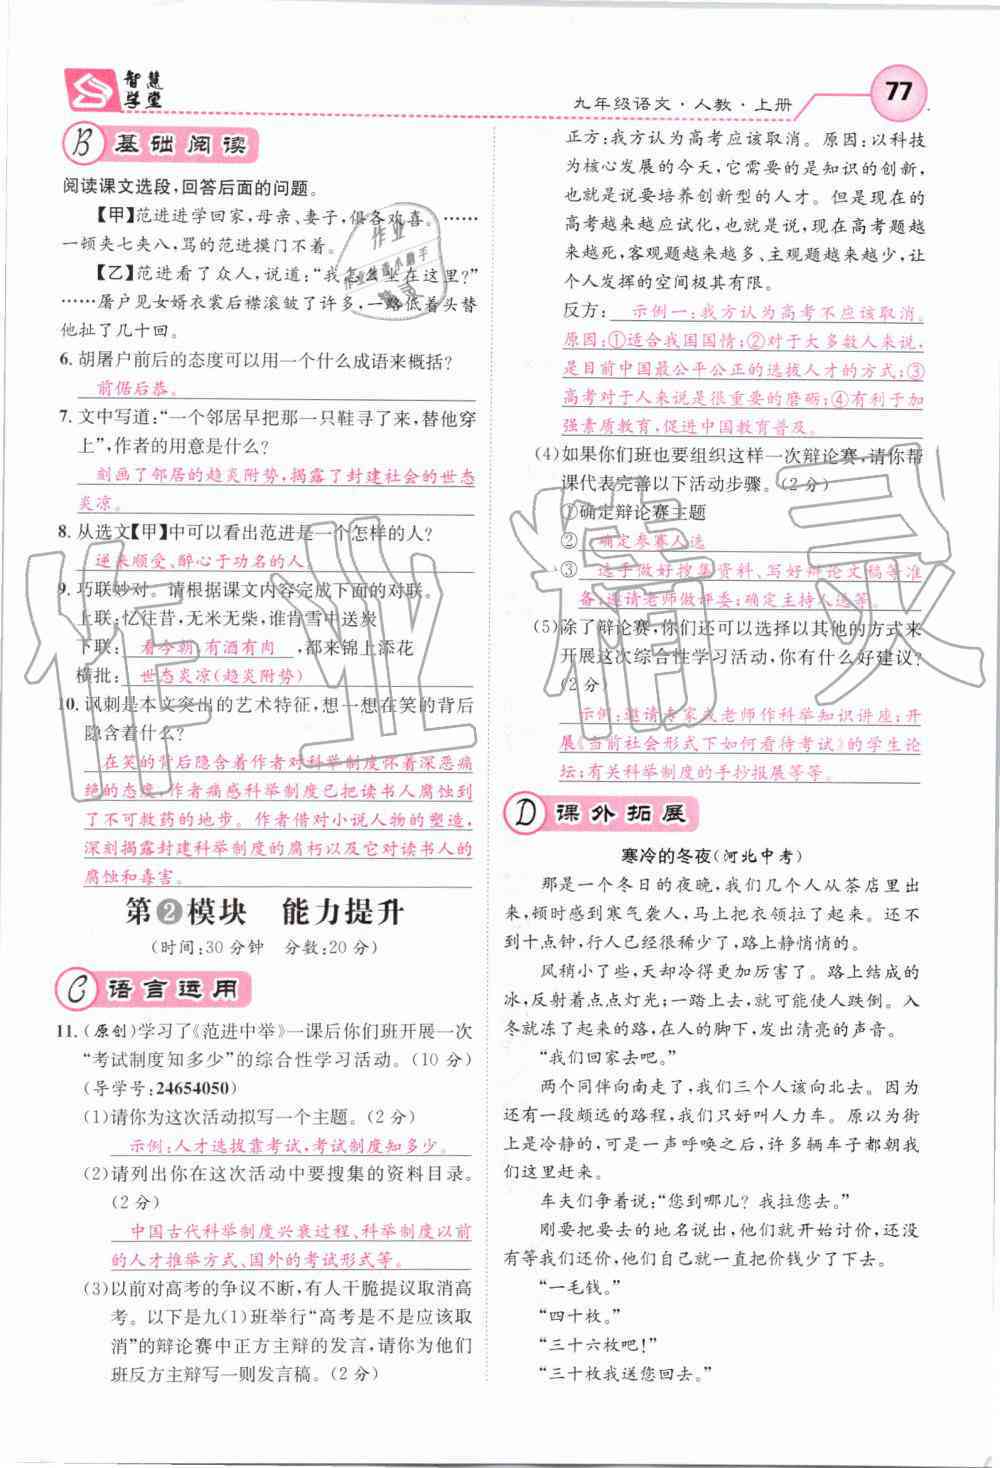 智慧
学堂
九年级语文·人教·上册
77
B 基础阅读
阅读课文选段,回答后面的问题。
【甲】范进进学回家,母亲、妻子,俱各欢喜。……
一顿夹七夹八,骂的范进摸门不着。
【乙】范进看了众人,说道:“我怎么坐在这里?”
……屠户见女婿衣裳后襟滚皱了许多,一路低着头替
他扯了几十回。
6. 胡屠户前后的态度可以用一个什么成语来概括?
前倨后恭。
7. 文中写道:“一个邻居早把那一只鞋寻了来,替他穿
上”,作者的用意是什么?
刻画了邻居的趋炎附势,揭露了封建社会的世态
炎凉。
8. 从选文【甲】中可以看出范进是一个怎样的人?
逆来顺受、醉心于功名的人
9. 巧联妙对。请根据课文内容完成下面的对联。
上联:忆往昔,无米无柴,谁肯雪中送炭
下联: 看今朝,有酒有肉 ,都来锦上添花
横批: 世态炎凉(趋炎附势)
10. 讽刺是本文突出的艺术特征,想一想在笑的背后
隐含着什么?
在笑的背后隐含着作者对科举制度怀着深恶痛
绝的态度,作者痛感科举制度已把读书人腐蚀到
了不可救药的地步。作者借对小说人物的塑造,
深刻揭露封建科举制度的腐朽以及它对读书人的
腐蚀和毒害。
第2模块 能力提升
(时间:30分钟 分数:20分)
C 语言运用
11. (原创)学习了《范进中举》一课后你们班开展一次
“考试制度知多少”的综合性学习活动。(10分)
(导学号:24654050)
(1)请你为这次活动拟写一个主题。(2分)
示例:人才选拔靠考试,考试制度知多少。
(2)请列出你在这次活动中要搜集的资料目录。
(2分)
中国古代科举制度兴衰过程、科举制度以前
的人才推举方式、国外的考试形式等。
(3)以前对高考的争议不断,有人干脆提议取消高
考。以下是九(1)班举行“高考是不是应该取
消”的辩论赛中正方主辩的发言,请你为他们
班反方主辩写一则发言稿。(2分)
正方:我方认为高考应该取消。原因:以科技
为核心发展的今天,它需要的是知识的创新,
也就是说要培养创新型的人才。但是现在的
高考越来越应试化,也就是说,现在高考题越
来越死,客观题越来越多、主观题越来越少,让
个人发挥的空间极其有限。
反方: 示例一:我方认为高考不应该取消。
原因:①适合我国国情;②对于大多数人来说,
是目前中国最公平公正的选拔人才的方式;③
高考对于人来说是很重要的磨砺;④有利于加
强素质教育,促进中国教育普及。
(4)如果你们班也要组织这样一次辩论赛,请你帮
课代表完善以下活动步骤。(2分)
①确定辩论赛主题
② 确定参赛人选
③ 选手做好搜集资料、写好辩论文稿等准
备;邀请老师做评委;确定主持人选等。
(5)除了辩论赛,你们还可以选择以其他的方式来
开展这次综合性学习活动,你有什么好建议?
(2分)
示例:邀请专家或老师作科举知识讲座;开
展《当前社会形式下如何看待考试》的学生论
坛;有关科举制度的手抄报展等等。
D 课外拓展
寒冷的冬夜(河北中考)
那是一个冬日的夜晚,我们几个人从茶店里出
来,顿时感到寒气袭人,马上把衣领拉了起来。还不
到十点钟,行人已经很少了,路上静悄悄的。
风稍小了些,天却冷得更加厉害了。路上结成的
冰,反射着点点灯光;一不小心,便会使人跌倒。入
冬就冻了起来的路,在人的脚下,发出清亮的声音。
“我们回家去吧。”
两个同伴向南走了,我们三个人该向北去。因为
还有一段颇远的路程,我们只好叫人力车。原以为街
上是冷静的,可是一声呼唤之后,许多辆车子都朝我
们这里赶来。
车夫们争着说:“您到哪儿?我拉您去。”
刚要把要去的地名说出,他们就开始讨价,还没
有等我们还价,他们自己就一直把价钱少了下去。
“一毛钱。”
“四十枚。”
“三十六枚吧!”
“三十枚我送您回去。”
作业精灵